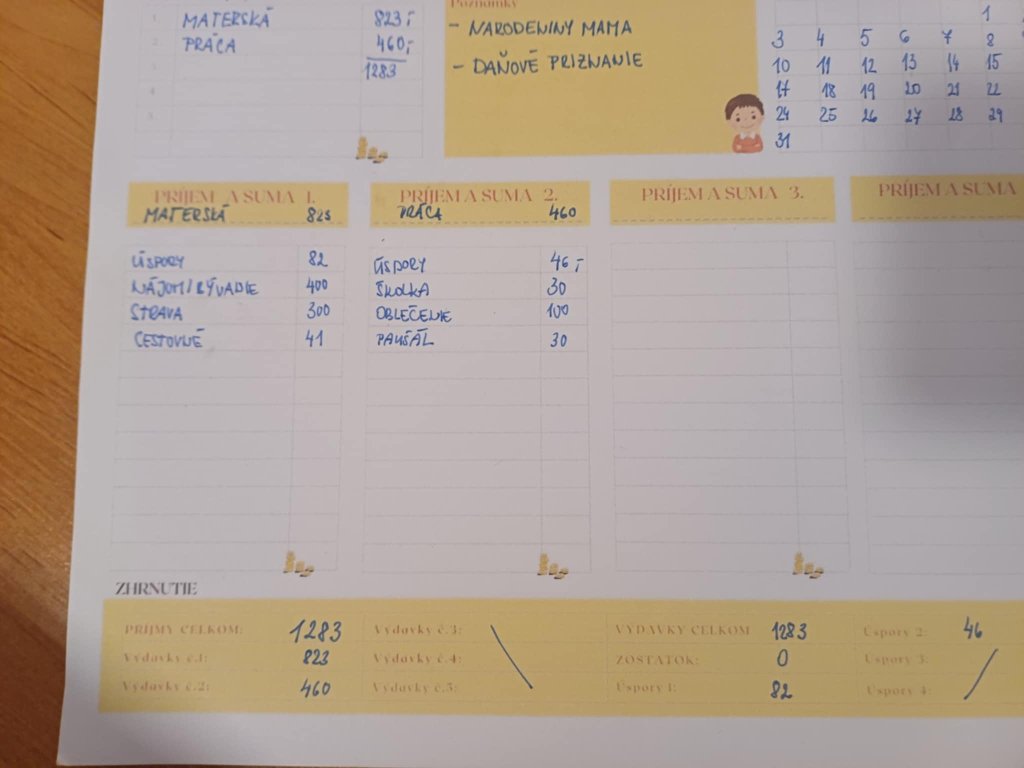 Poznámky
1. MATERSKÁ 823,-
2. PRÁCA 460,-
3. 1283
4.
5.
- NARODENINY MAMA
- DAŇOVÉ PRIZNANIE
1
3 4 5 6 7 8
10 11 12 13 14 15
17 18 19 20 21 22
24 25 26 27 28 29
31
PRÍJEM A SUMA 1.
MATERSKÁ 823
ÚSPORY 82
NÁJOM/BÝVANIE 400
STRAVA 300
CESTOVNÉ 41
PRÍJEM A SUMA 2.
PRÁCA 460
ÚSPORY 46,-
ŠKOLKA 30
OBLEČENIE 100
PAUŠÁL 30
PRÍJEM A SUMA 3.
PRÍJEM A SUMA
ZHRNUTIE
PRÍJMY CELKOM: 1283
Výdavky č.1: 823
Výdavky č.2: 460
Výdavky č.3:
Výdavky č.4:
Výdavky č.5:
VÝDAVKY CELKOM 1283
ZOSTATOK: 0
Úspory 1: 82
Úspory 2: 46
Úspory 3:
Úspory 4: